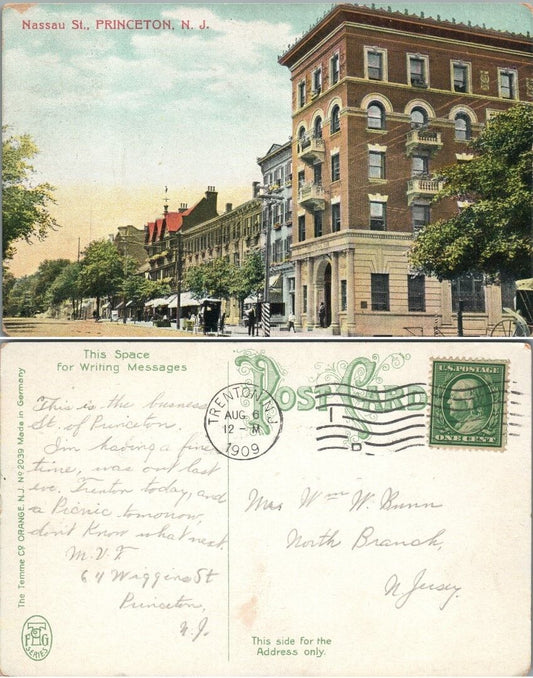 Nassau St., PRINCETON, N. J.
This Space
for Writing Messages
POST CARD
TRENTON, N.J.
AUG 6
12 - M
1909
1
D
U.S. POSTAGE
ONE CENT
This is the business
St. of Princeton.
I'm having a fine
time, was out last
eve, Trenton today, and
a Picnic tomorrow,
don't Know what next.
M.V.F
64 Wiggins St
Princeton,
N.J.
Mrs Wm W. Bunn
North Branch,
N Jersey.
The Temme Co. ORANGE. N.J. No 2039 Made in Germany
SERIES
This side for the
Address only.